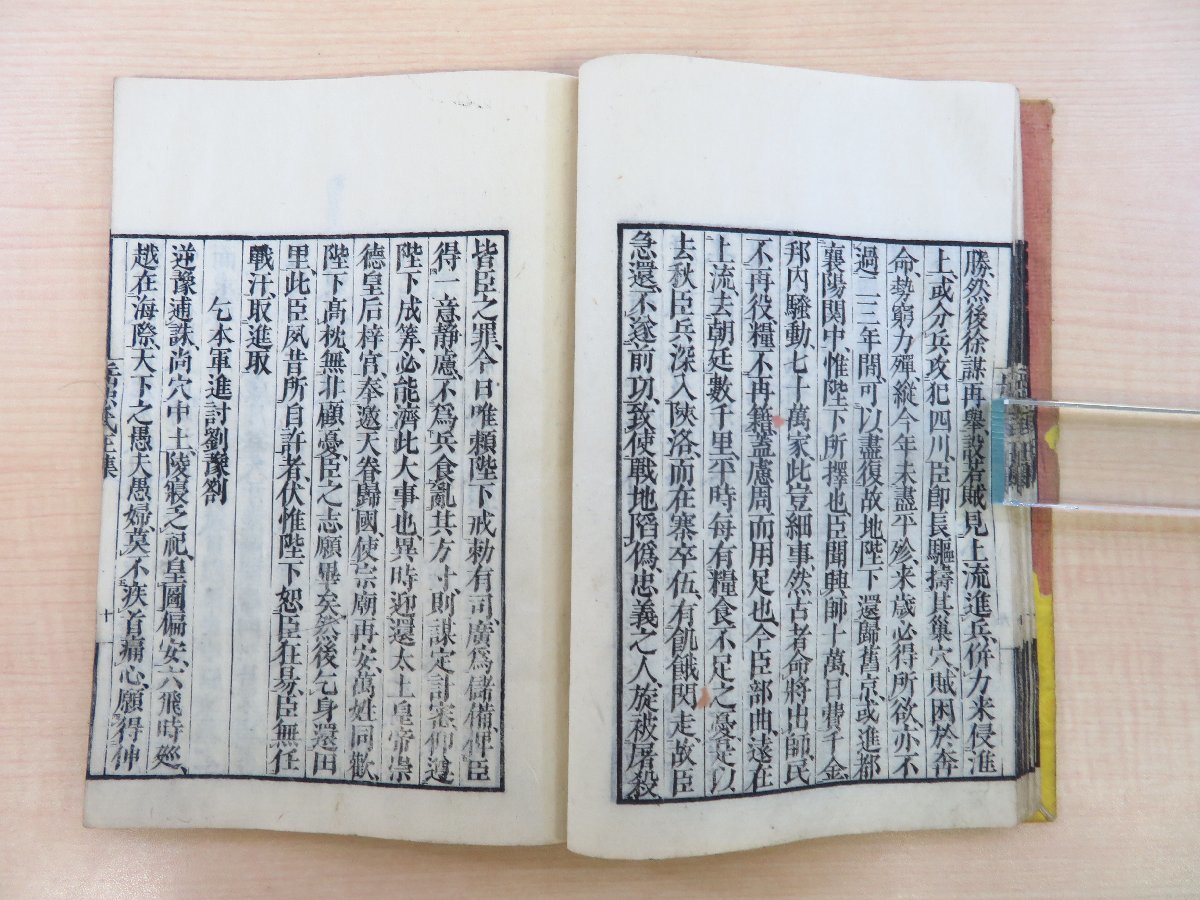 勝然後徐謀再舉設若賊見上流進兵併力來侵淮
上或分兵攻犯四川臣卽長驅擣其巢穴賊困於奔
命勢窮力殫縱今年未盡平殄來歲必得所欲亦不
過二三年間可以盡復故地陛下還歸舊京或進都
襄陽関中惟陛下所擇也臣聞興師十萬日費千金
邦內騷動七十萬家此豈細事然古者命將出師民
不再役糧不再籍蓋慮周而用足也今臣部曲遠在
上流去朝廷數千里平時每有糧食不足之憂是以
去秋臣兵深入陝洛而在寨卒伍有飢餓閃走故臣
急還不遂前功致使戰地陷僞忠義之人旋被屠殺
皆臣之罪今日唯賴陛下戒勅有司廣爲儲備俾臣
得一意靜慮不爲兵食亂其方寸則謀定計審仰遵
陛下成筭必能濟此大事也異時迎還太上皇帝崇
德皇后梓宮奉邀天眷歸國使宗廟再安萬姓同歡
陛下高枕無北顧憂臣之志願畢矣然後乞身還田
里此臣夙昔所自許者伏惟陛下恕臣狂易臣無任
戰汗取進取
乞本軍進討劉豫劄
逆豫逋誅尚穴中土陵寢乏祀皇圖偏安六飛時廵
越在海際天下之愚夫愚婦莫不疾首痛心願得伸
岳忠武王集
十